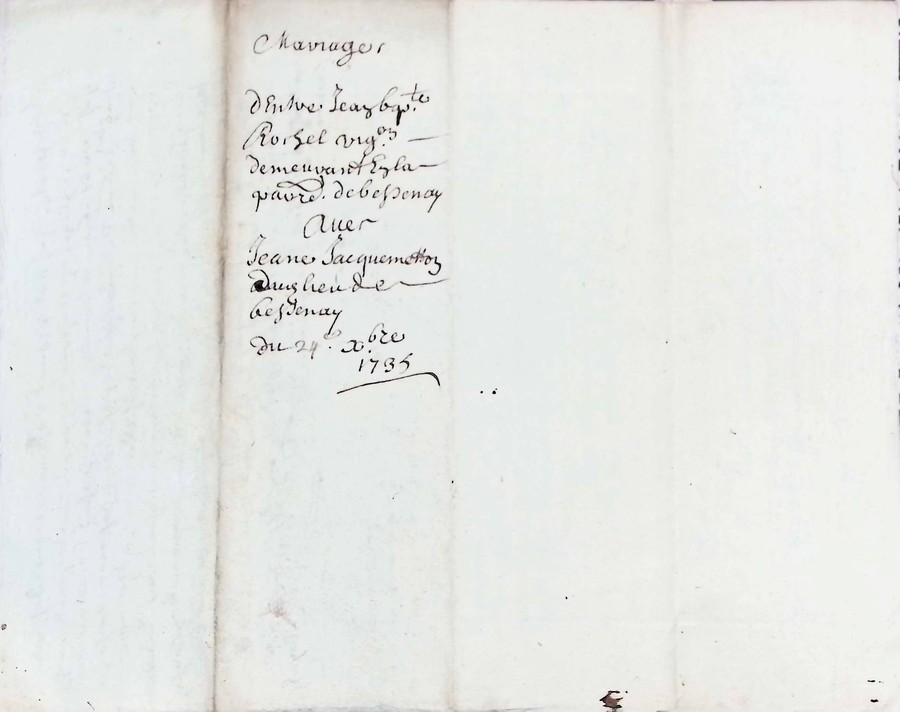 Mariage
d'Entre Jean bapte
Rochel vigon
demeurant En la
paroe. de bessenay
Avec
Jeane Jacquemetton
du lieu de
bessenay
du 24e xbre
1735